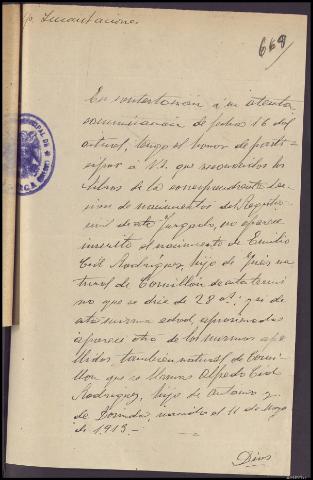 668
En contestación á su atenta
comunicación de fecha 16 del
actual, tengo el honor de parti-
cipar á V.S. que reconocidos los
libros de la correspondiente Sec-
cion de nacimientos del Registro
civil de este Juzgado, no aparece
inscrito el nacimiento de Emilio
Cid Rodríguez, hijo de Inés na-
tural de de este termi
no que se dice de 28 a.s; y si de
esta misma edad, aproximada
aparece otro de los mismos ape-
llidos tambien natural de
que se llama Alfredo Cid
Rodriguez, hijo de Antonio y
de nacido el 11 de Mayo
de 1913.-
Dios